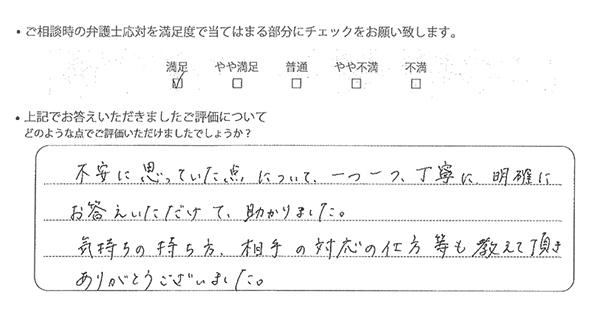 ・ご相談時の弁護士応対を満足度で当てはまる部分にチェックをお願い致します。
満足 やや満足 普通 やや不満 不満
・上記でお答えいただきましたご評価について
どのような点でご評価いただけましたでしょうか？
不安に思っていた点について、一つ一つ、丁寧に、明確に
お答えいただけて、助かりました。
気持ちの持ち方、相手の対応の仕方等も教えて頂き
ありがとうございました。